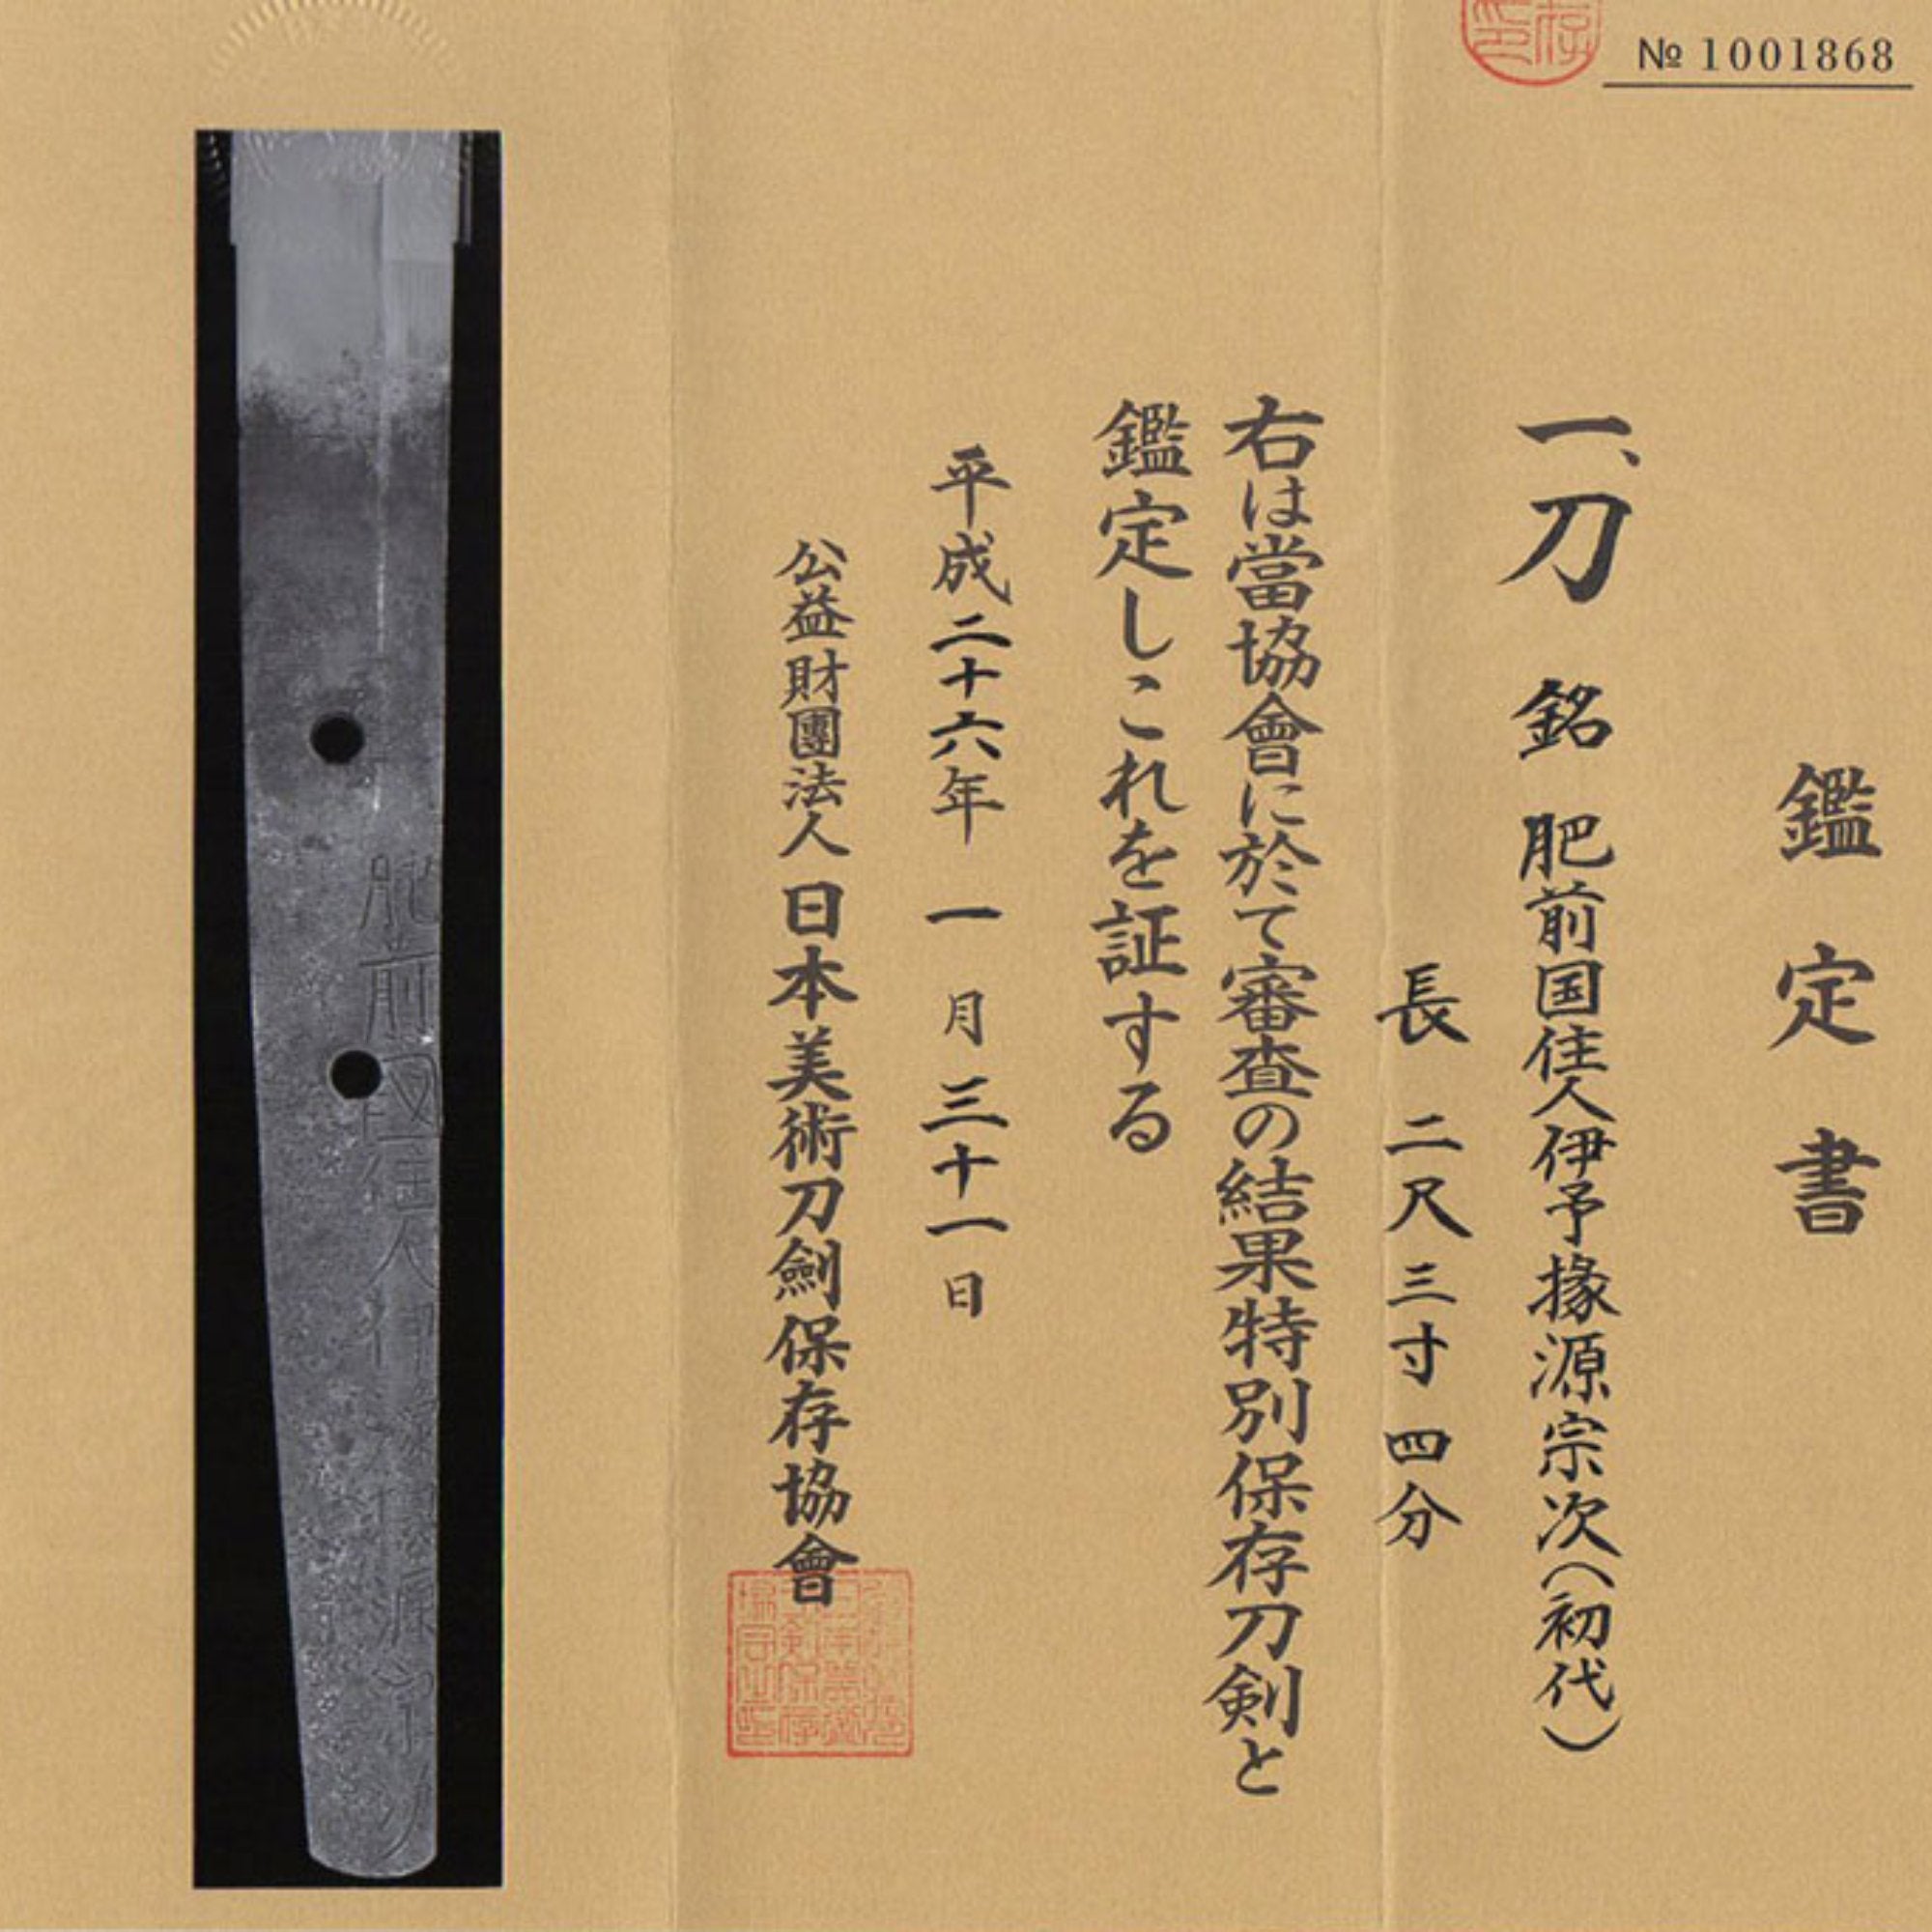 № 1001868
鑑定書
一、刀 銘 肥前国住人伊予掾源宗次(初代)
長 二尺三寸四分
右は當協會に於て審査の結果特別保存刀剣と
鑑定しこれを証する
平成二十六年一月三十一日
公益財團法人日本美術刀劍保存協會
肥前國住人伊予掾源宗次